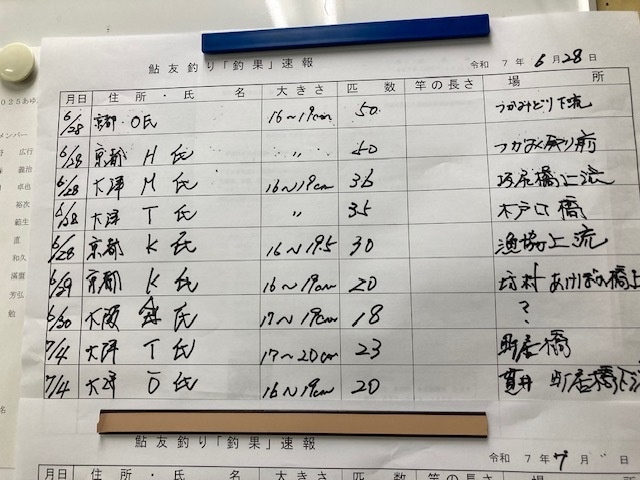 鮎友釣り「釣果」速報 令和 7年 6月28日
月日 住所・氏 名 大きさ 匹 数 竿の長さ 場 所
6/28 京都 O氏 16～19cm 50 つかみどり下流
6/28 京都 H 氏 〃 50 つかみ取り前
6/28 大津 M 氏 16～19cm 36 上流
6/28 大津 T 氏 〃 35 木戸口橋
6/28 京都 K 氏 16～19.5 30 漁協上流
6/29 京都 K 氏 16～19cm 20 坊村 あけぼの橋上
6/30 大阪 氏 17～19cm 18 ?
7/4 大津 T 氏 17～20cm 23 町居橋
7/4 大津 O 氏 16～19cm 20 貫井 町居橋下
鮎友釣り「釣果」速報 令和 7年 7月 日
月日 住所・氏 名 大きさ 匹 数 竿の長さ 場 所
2025あゆ
メンバー
広行
義治
卓也
裕次
範生
直
和久
満盟
芳弘
勉
名